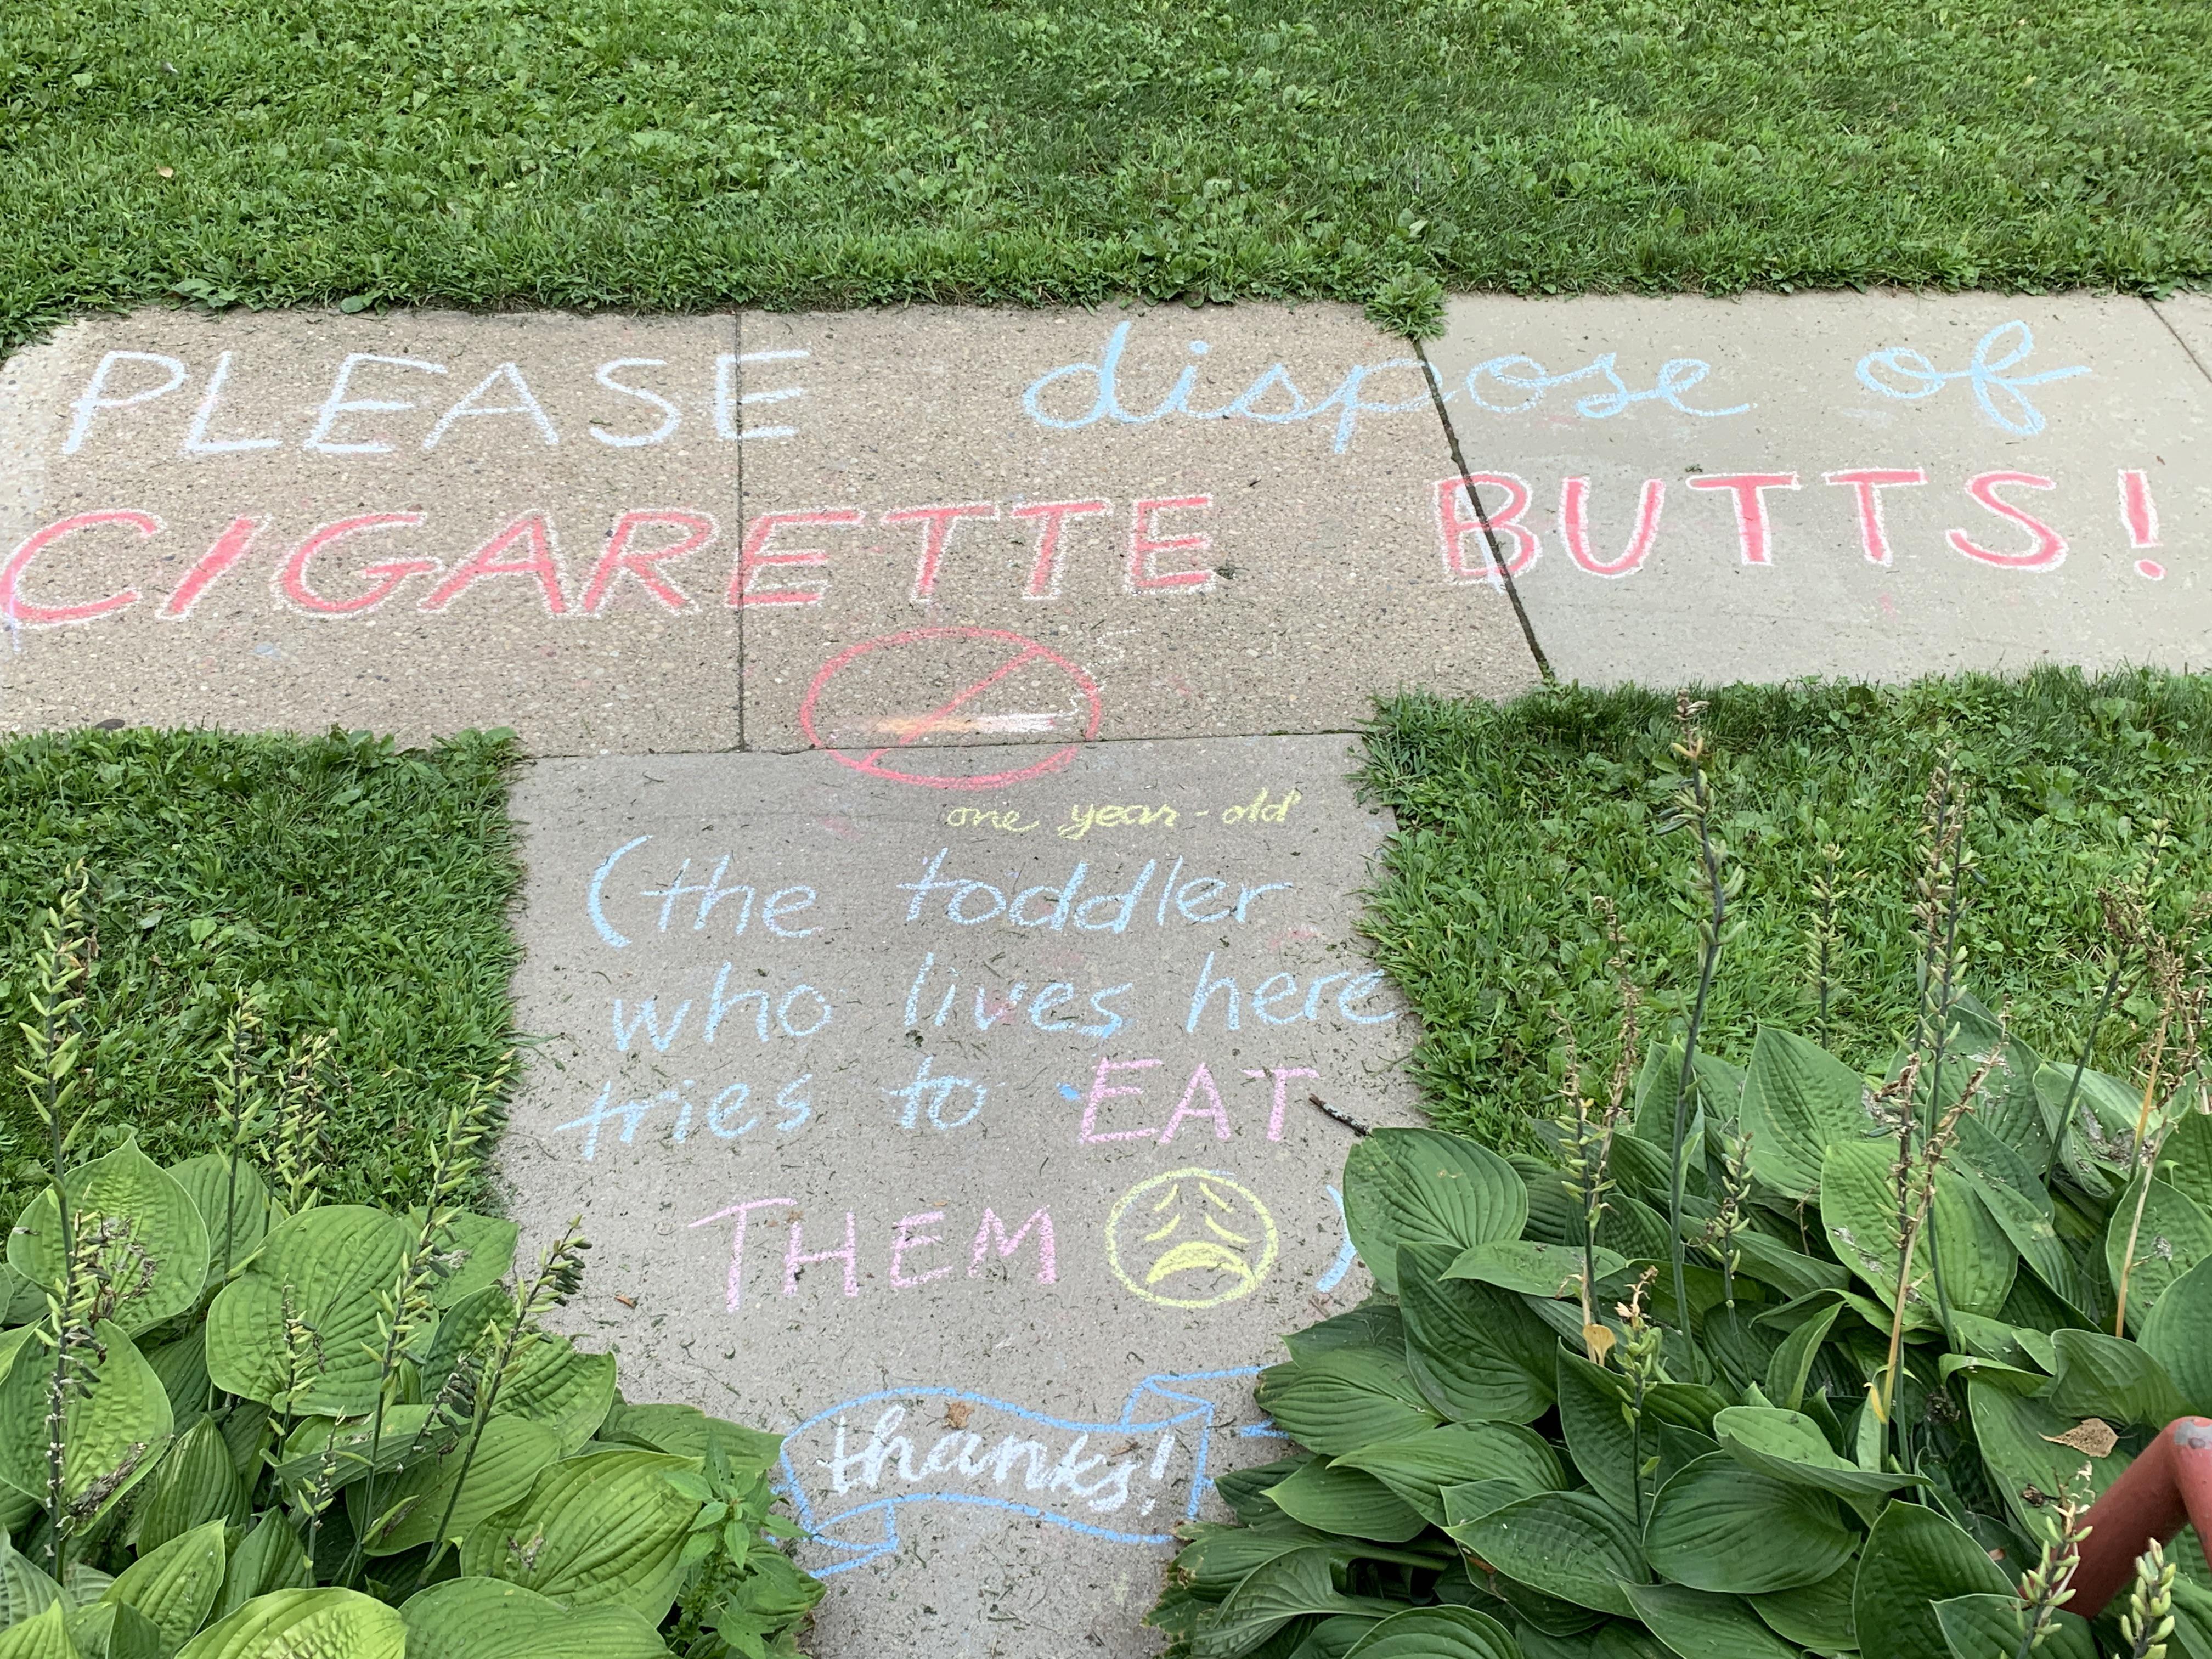 PLEASE dispose of
CIGARETTE BUTTS!
one year-old
(the toddler
who lives here
tries to EAT
THEM )
thanks!